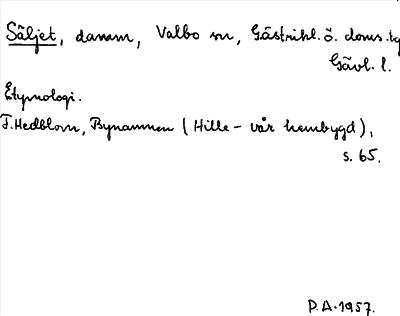 Säljet, danam, Valbo sn, Gästrikl. ö. doms. tg
Gävl. l.
Etymologi.
F. Hedblom, Bynamnen (Hille - vår hembygd),
s. 65.
P.A. 1957.